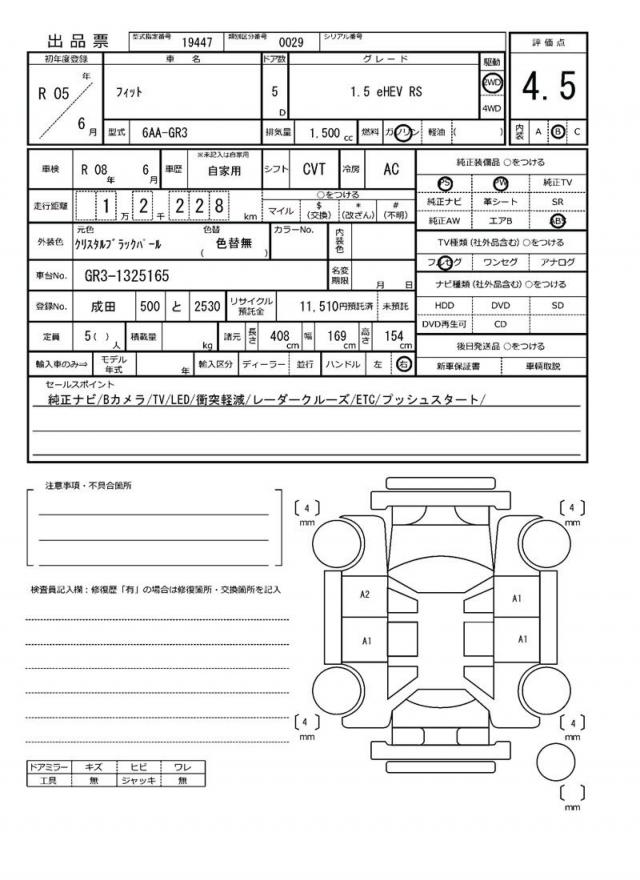 出品票 型式指定番号 19447 類別区分番号 0029 シリアル番号
評価点
初年度登録 車名 ドア数 グレード 駆動
R 05 年 6 月 フィット 5 D 1.5 eHEV RS 2WD 4WD
4.5
型式 6AA-GR3 排気量 1.500 cc 燃料 ガソリン 軽油 ( ) 内装 A B C
車検 R 08 年 6 月 車歴 ※未記入は自家用 自家用 シフト CVT 冷房 AC
純正装備品 ○をつける
PS PW 純正TV
純正ナビ 革シート SR
純正AW エアB ABS
走行距離 1 万 2 千 2 2 8 km ○をつける マイル $ (交換) * (改ざん) # (不明)
TV種類(社外品含む)○をつける
フルセグ ワンセグ アナログ
外装色 元色 クリスタルブラックパール 色替 ( 色替無 ) カラーNo. 内装色
車台No. GR3-1325165 名変期限 月 日
ナビ種類(社外品含む)○をつける
HDD DVD SD
DVD再生可 CD
登録No. 成田 500 と 2530 リサイクル預託金 11,510円預託済 未預託
定員 5( ) 人 積載量 kg 諸元 長さ 408 cm 幅 169 cm 高さ 154 cm
後日発送品 ○をつける
新車保証書 車輌取説
輸入車のみ⇒ モデル年式 年 輸入区分 ディーラー 並行 ハンドル 左 右
セールスポイント
純正ナビ/Bカメラ/TV/LED/衝突軽減/レーダークルーズ/ETC/プッシュスタート/
注意事項・不具合箇所
検査員記入欄:修復歴「有」の場合は修復箇所・交換箇所を記入
[ 4 ] mm
[ 4 ] mm
A2 A1
A1 A1
[ 4 ] mm
[ 4 ] mm
[ ] mm
ドアミラー キズ ヒビ ワレ
工具 無 ジャッキ 無